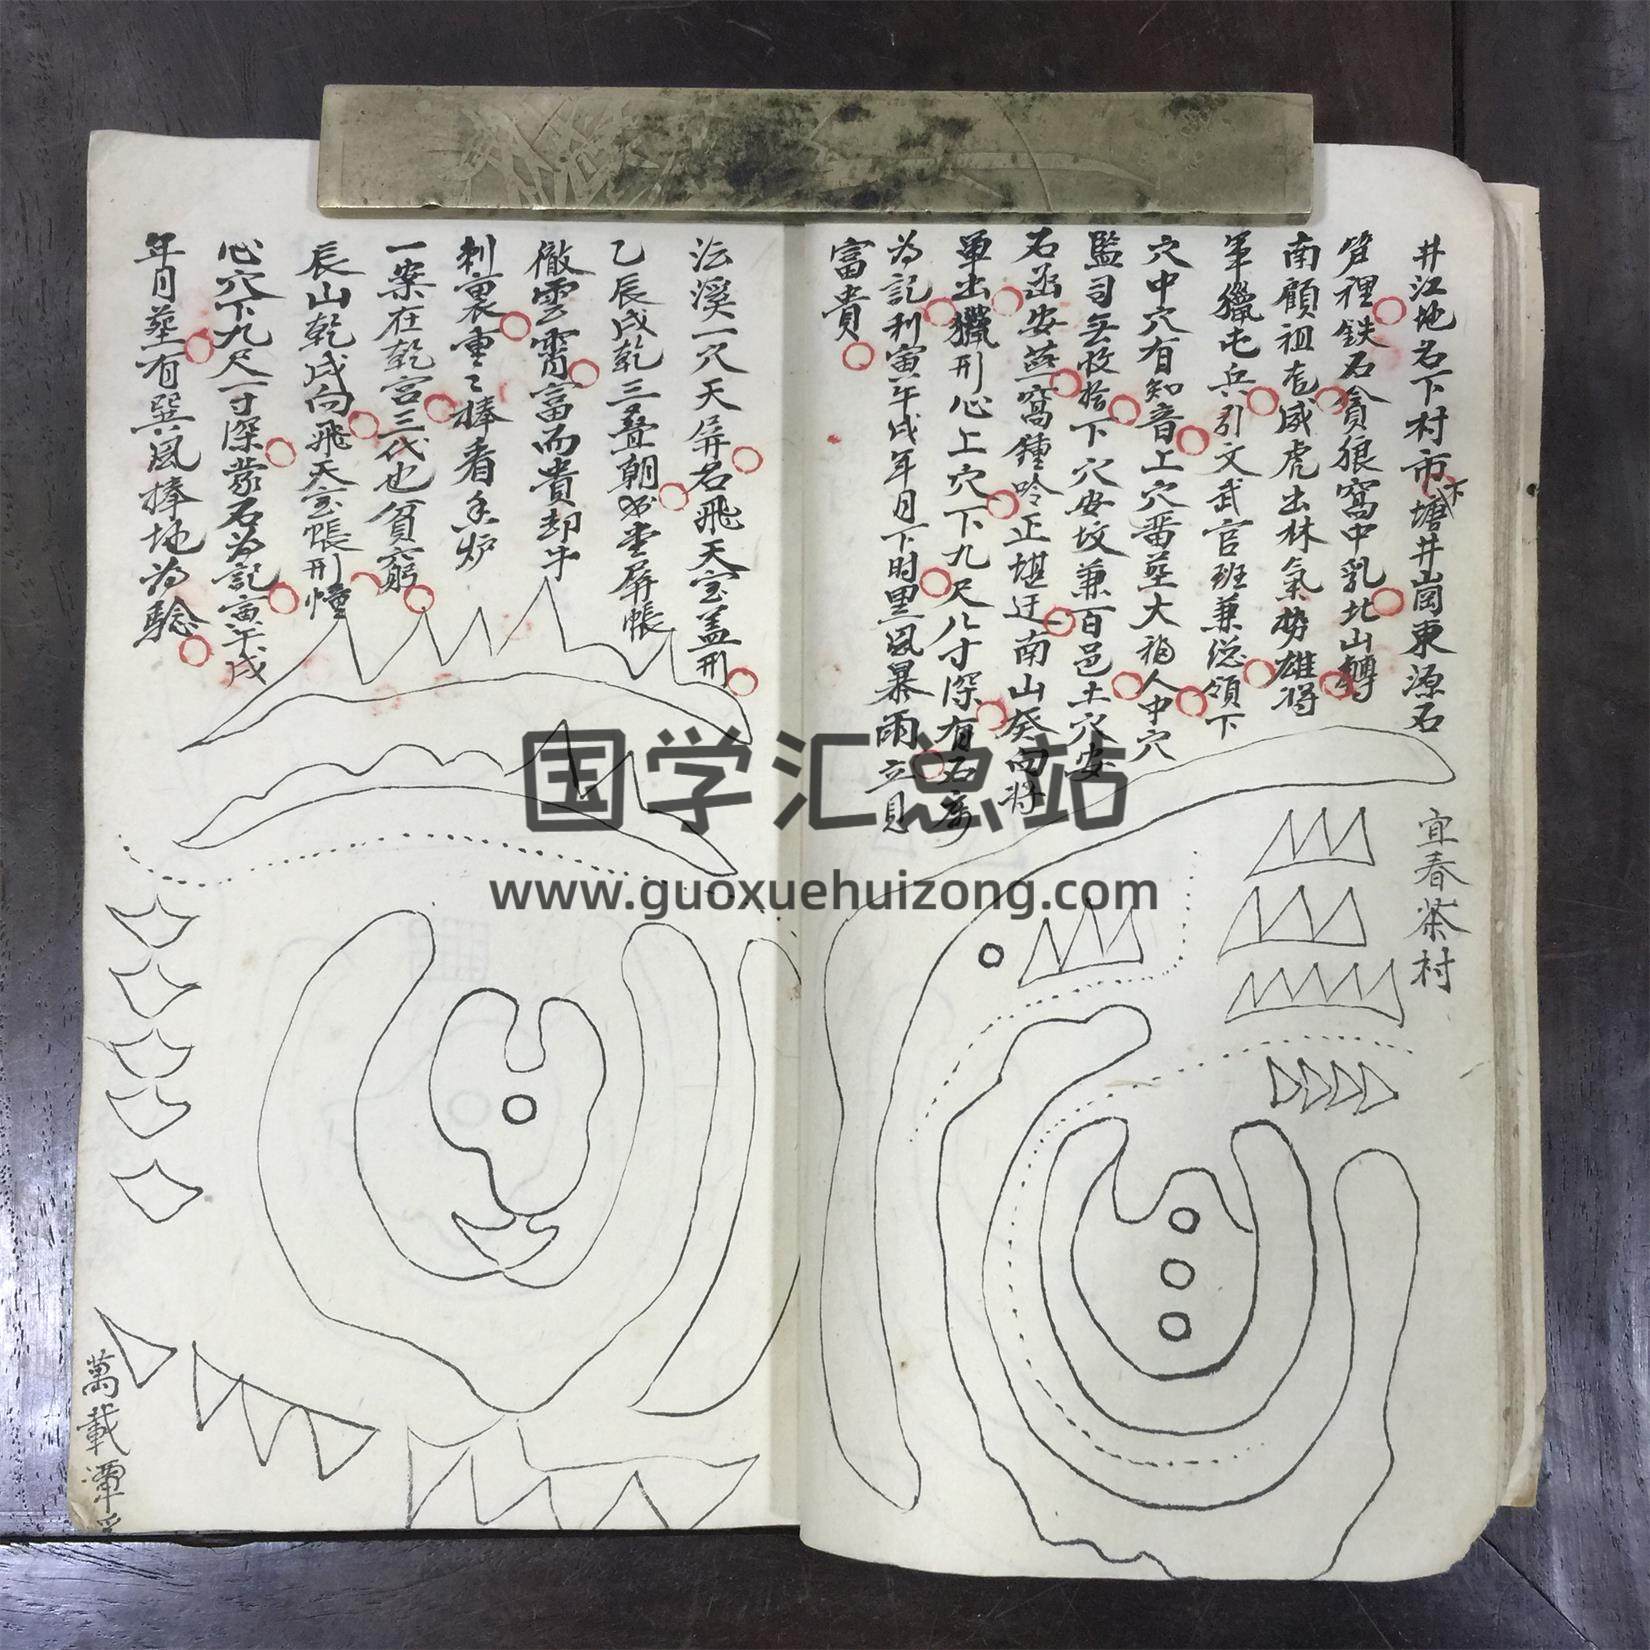 井江地名下村市塘下井崗東源石
管裡鉄石貪狼窩中乳北山轉
南顧祖有威虎出林氣势雄將
軍獵屯兵引文武官班兼总領下
穴中穴有知音上穴葬大福人中穴
監司无收拾下穴安坟兼百邑土穴安
石函安燕窩鍾吟正堪迁南山癸向将
軍出獵形心上穴下九尺八寸深有石
為記利寅午戌年月下时黑風暴雨立見
富貴
宜春茶村
沄溪一穴天屏名飛天宝盖形
乙辰戌乾三叠朝 堂屏帳
徹雲霄富而貴却牛
刺裏重〻棒看香炉
一案在乾宫三代也貧窮
辰山乾戌向飛天宝帳形憧
心穴下九尺一寸深蒙石為記寅午戌
年月塟有巽風捧地為騐
萬載潭
国学汇总站
www.guoxuehuizong.com